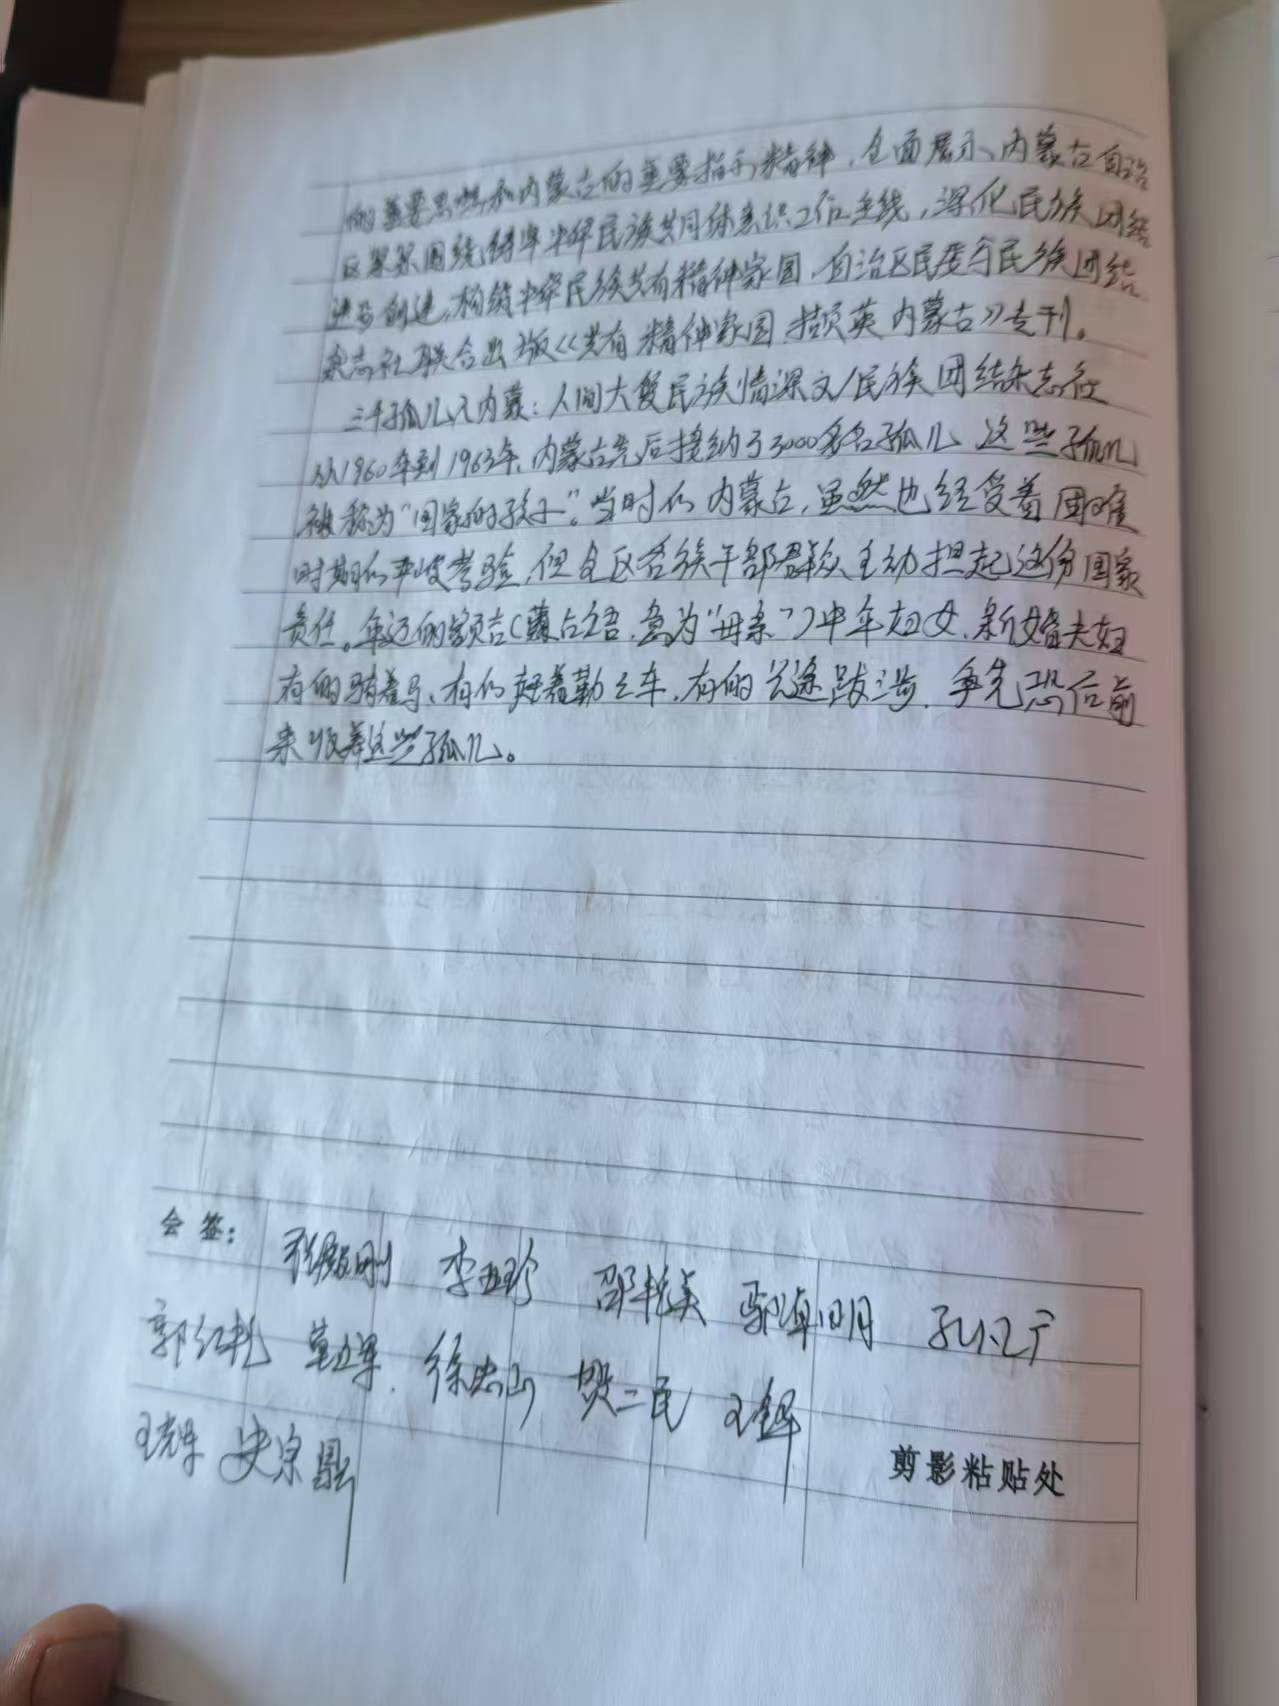 的重要思想和内蒙古的重要指示精神,全面展示内蒙古自治
区紧紧围绕铸牢中华民族共同体意识工作主线,深化民族团结
进步创建,构筑中华民族共有精神家园,自治区民委与民族团结
杂志社联合出版《共有精神家园 撷英内蒙古》专刊。
三千孤儿入内蒙:人间大爱民族情深文/民族团结杂志社
从1960年到1963年,内蒙古先后接纳了3000多名孤儿 这些孤儿
被称为“国家的孩子”。当时的内蒙古,虽然也经受着困难
时期的严峻考验,但全区各族干部群众主动担起这份国家
责任。年迈的额吉(蒙古语,意为“母亲”)中年妇女、新婚夫妇
有的骑着马、有的赶着勒勒车,有的长途跋涉,争先恐后前
来收养这些孤儿。
会签:
张毅刚 李亚珍 邵艳美
郭红艳 徐忠山 王铎
王辉
剪影粘贴处